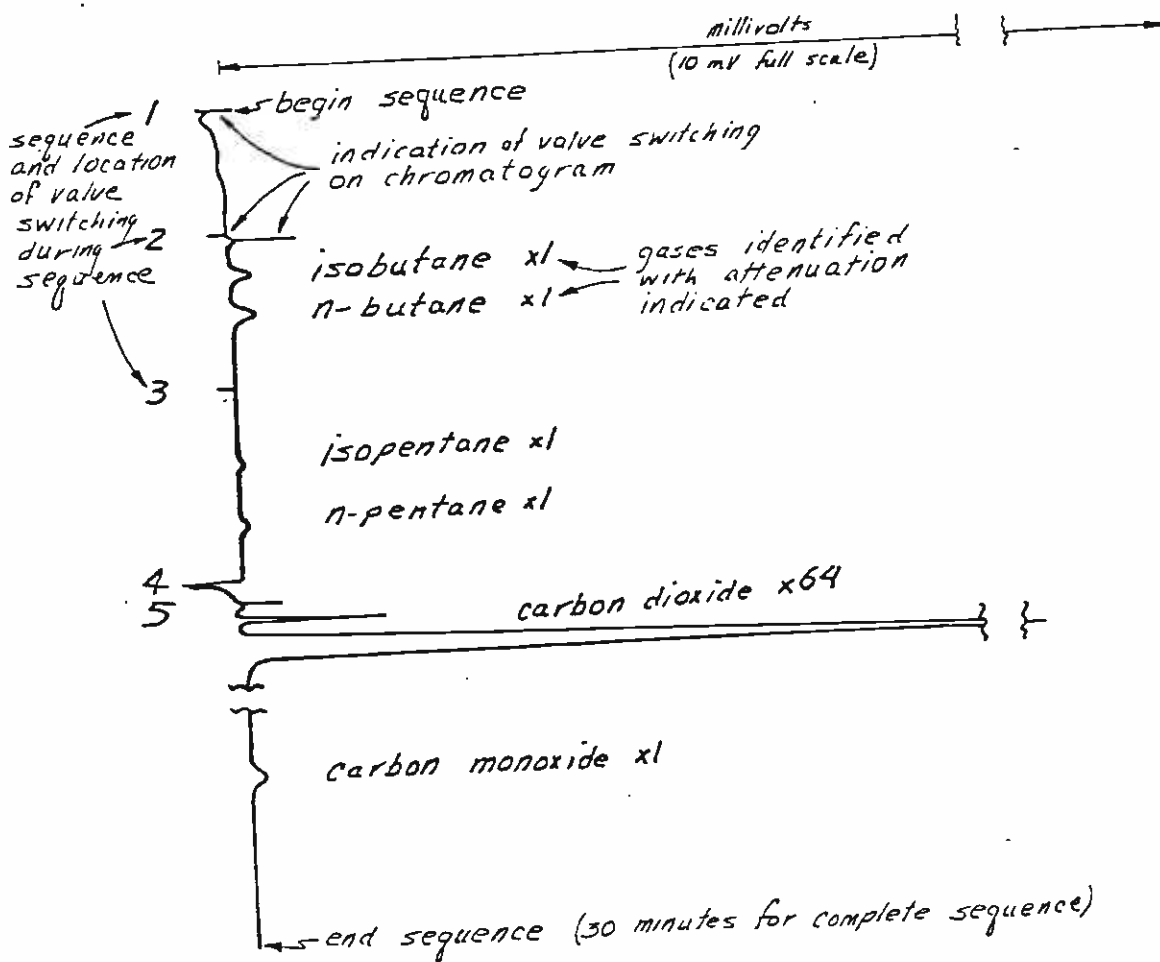 millivolts
(10 mv full scale)
1
begin sequence
sequence
and location
of valve
switching
during
sequence
indication of valve switching
on chromatogram
2
isobutane x1
n-butane x1
gases identified
with attenuation
indicated
3
isopentane x1
n-pentane x1
4
5
carbon dioxide x64
carbon monoxide x1
end sequence (30 minutes for complete sequence)